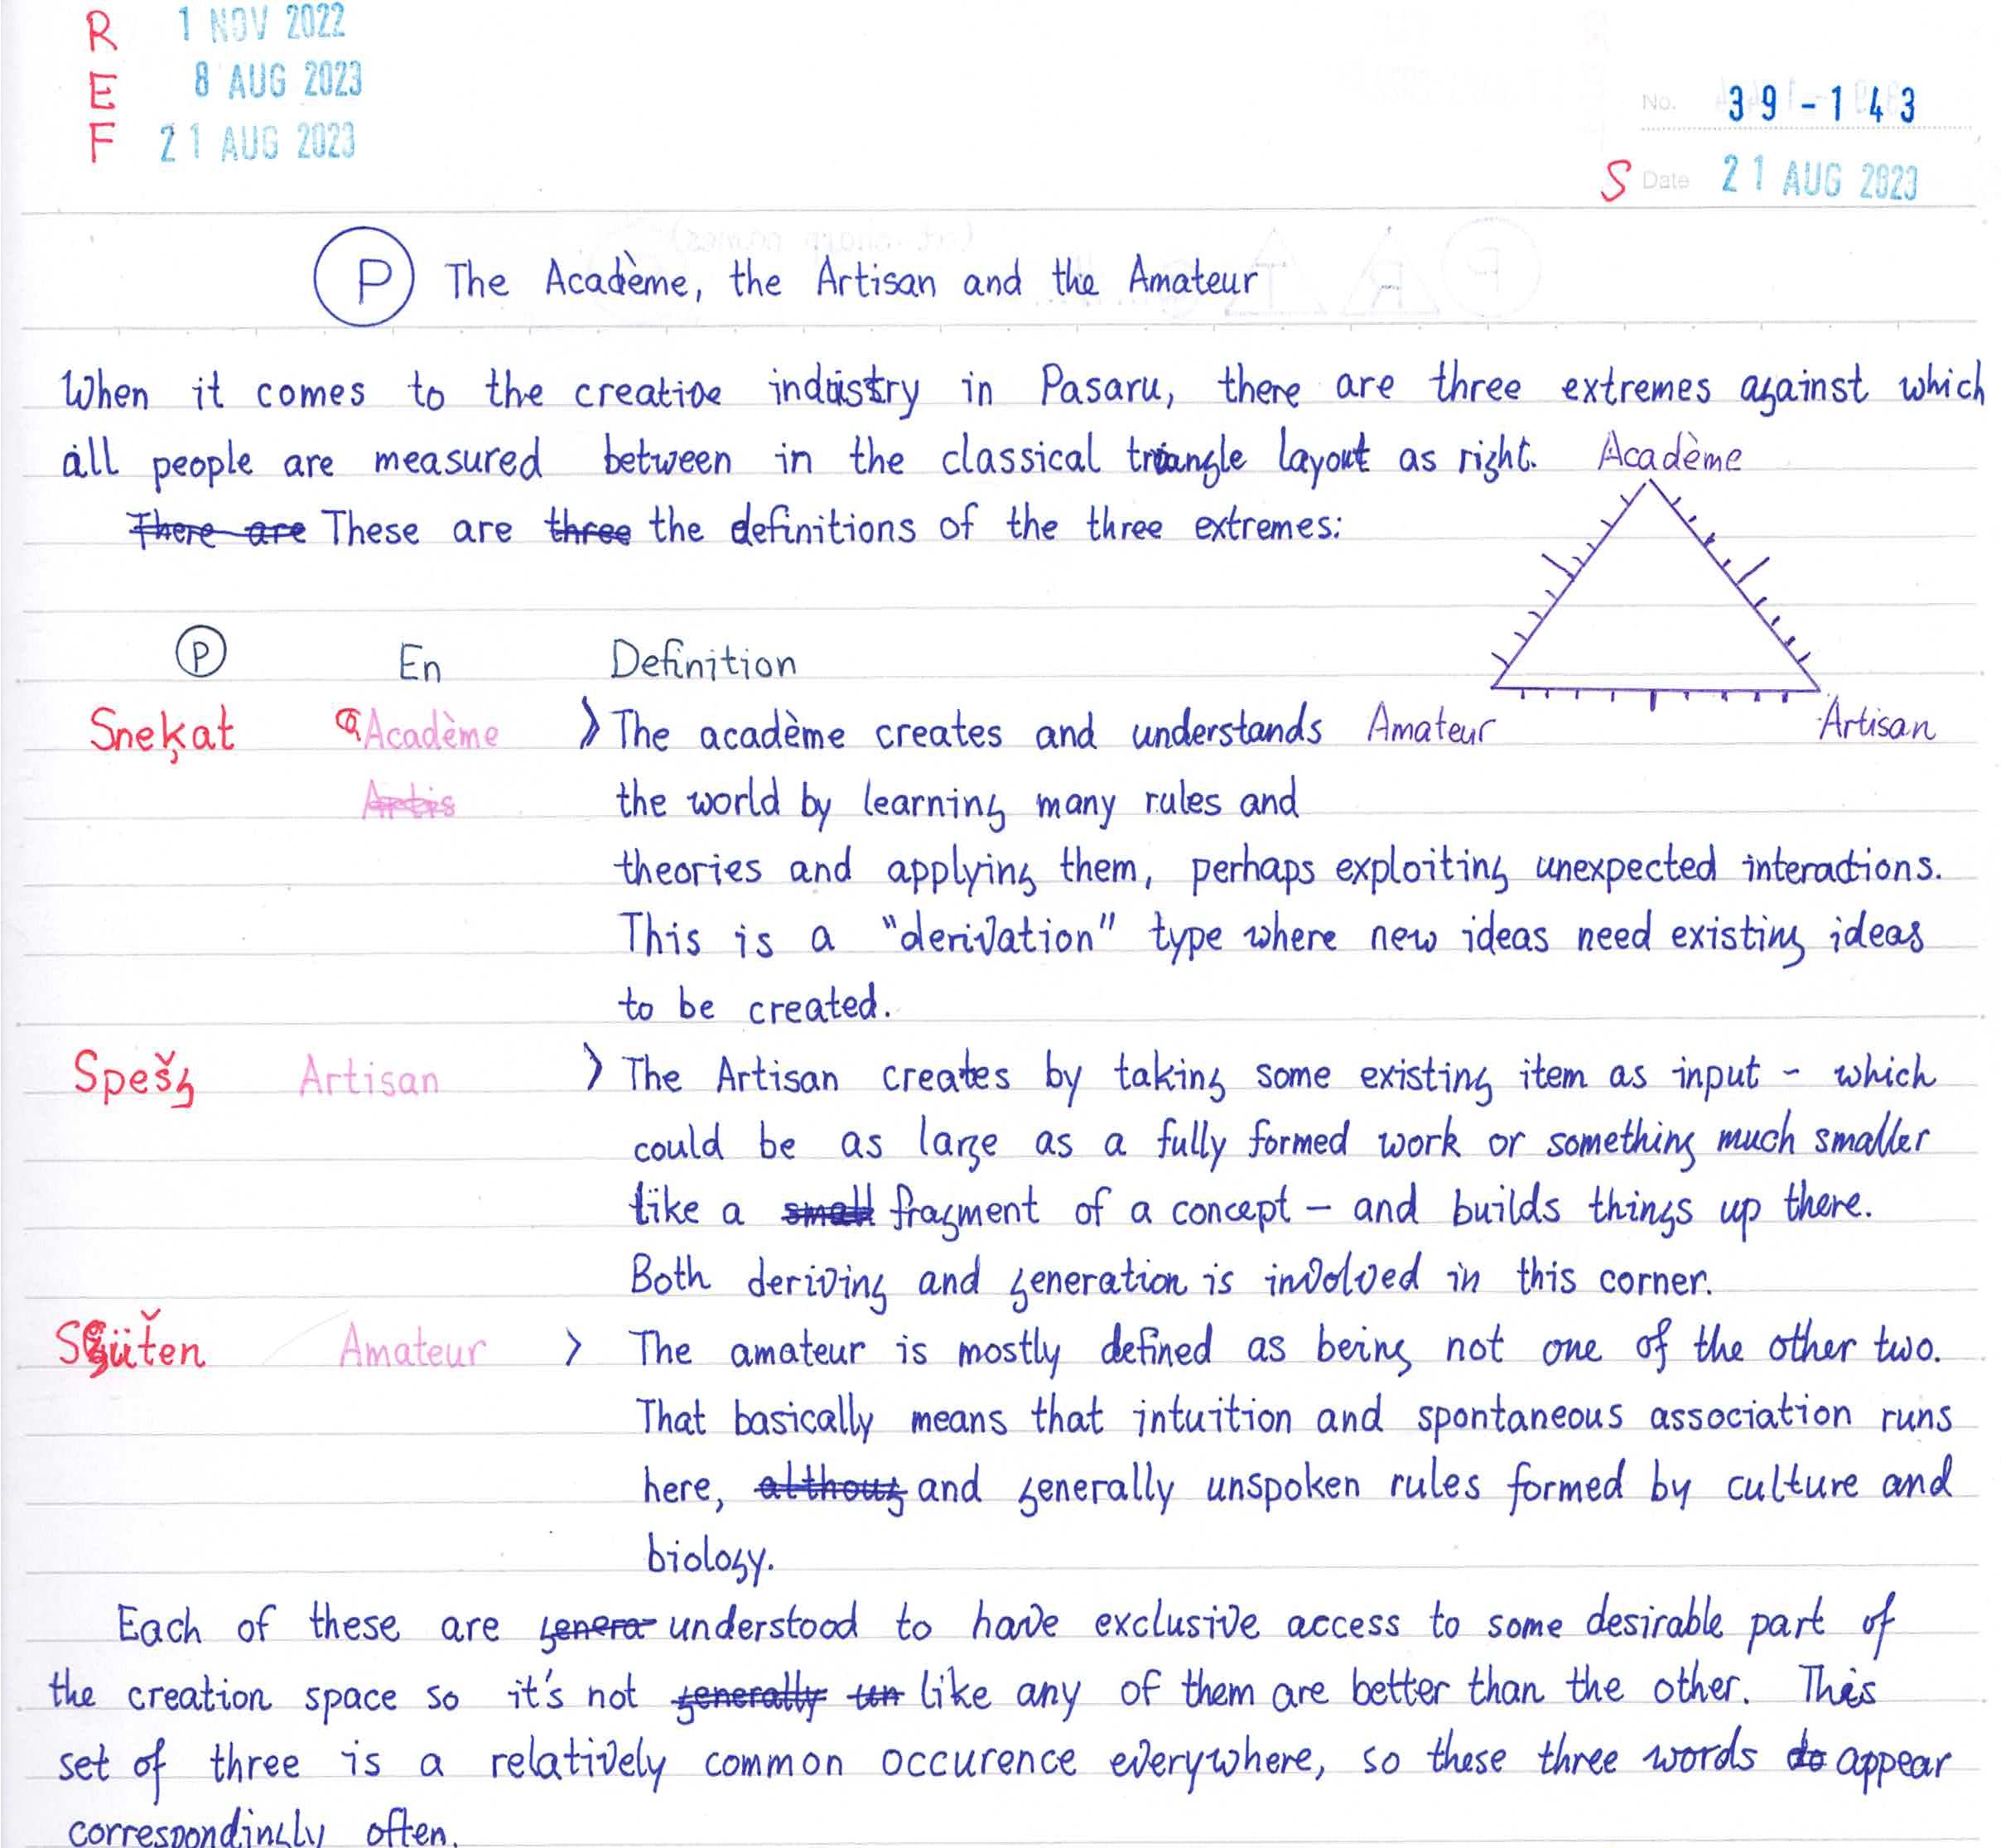 R 1 NOV 2022
E 8 AUG 2023
F 21 AUG 2023
No. 39-143
S Date 21 AUG 2023
P The Académe, the Artisan and the Amateur
When it comes to the creative industry in Pasaru, there are three extremes against which
all people are measured between in the classical triangle layout as right. Acadème
There are These are three the definitions of the three extremes:
P En Definition
Sneķat Acadème > The acadème creates and understands Amateur Artisan
Artis the world by learning many rules and
theories and applying them, perhaps exploiting unexpected interactions.
This is a "derivation" type where new ideas need existing ideas
to be created.
Spešg Artisan > The Artisan creates by taking some existing item as input - which
could be as large as a fully formed work or something much smaller
like a small fragment of a concept - and builds things up there.
Both deriving and generation is involved in this corner.
Sgüťen Amateur > The amateur is mostly defined as being not one of the other two.
That basically means that intuition and spontaneous association runs
here, althoug and generally unspoken rules formed by culture and
biology.
Each of these are genera understood to have exclusive access to some desirable part of
the creation space so it's not generally un like any of them are better than the other. This
set of three is a relatively common occurence everywhere, so these three words do appear
correspondingly often.